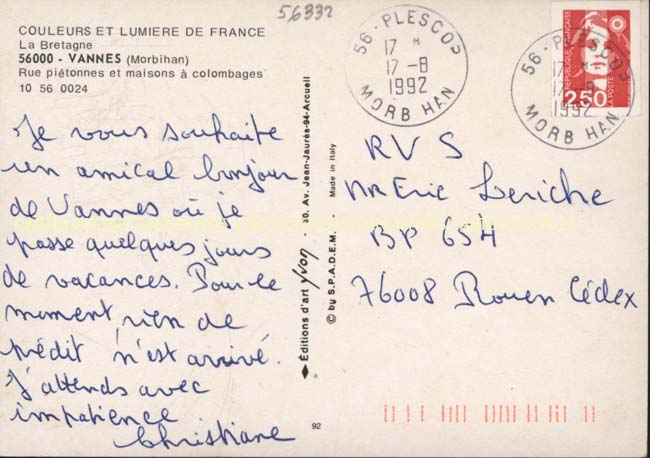 56332
COULEURS ET LUMIERE DE FRANCE
La Bretagne
56000 - VANNES (Morbihan)
Rue piétonnes et maisons à colombages
10 56 0024
56 - PLESCOP
17 H
17 - 8
1992
MORBIHAN
56 - PLESCOP
17 H
17 - 8
1992
MORBIHAN
RÉPUBLIQUE FRANÇAISE
2,50
LA POSTE
Je vous souhaite
un amical bonjour
de Vannes où je
passe quelques jours
de vacances. Pour le
moment rien de
prédit n'est arrivé.
J'attends avec
impatience
Christiane
Éditions d'art yvon 30, Av. Jean-Jaurès-94-Arcueil
© by S.P.A.D.E.M. Made in Italy
92
RVS
Mr Eric Leriche
BP 654
76008 Rouen Cédex